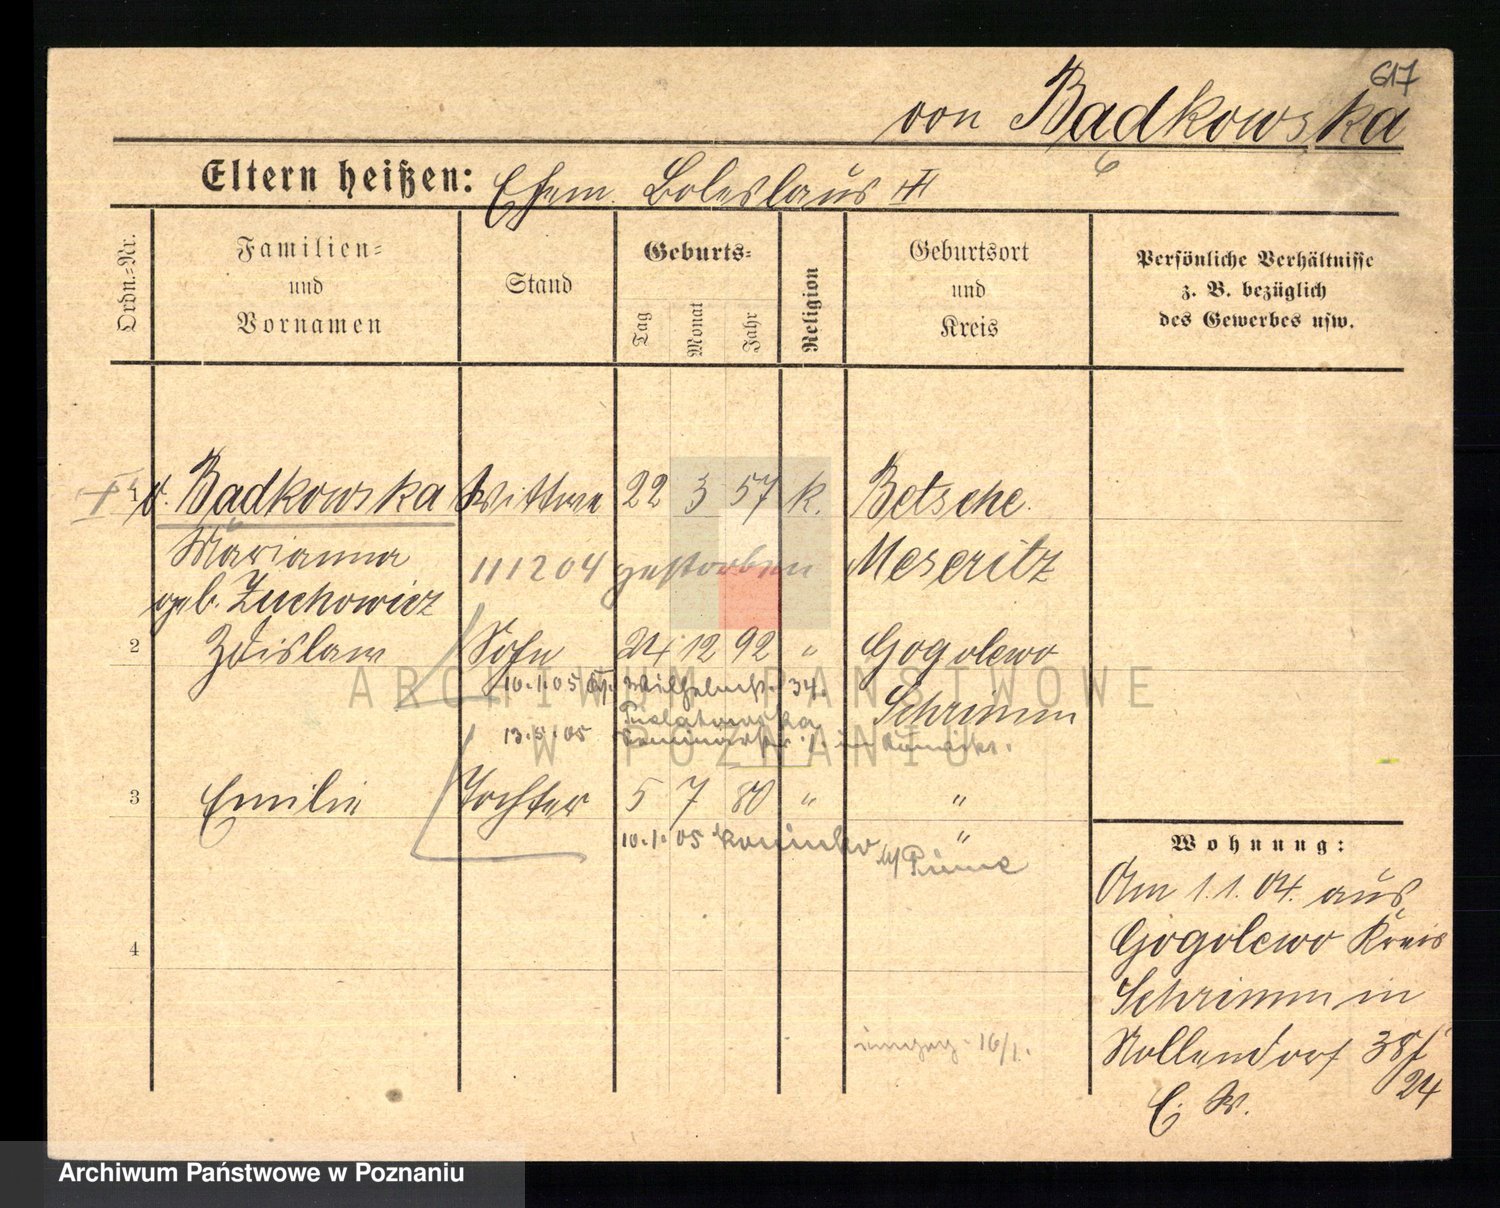 617
von Badkowska
Eltern heißen: Ehem. Boleslaus
Ordn.=Nr.
Familien=
und
Vornamen
Stand
Geburts=
Tag
Monat
Jahr
Religion
Geburtsort
und
Kreis
Persönliche Verhältnisse
z. B. bezüglich
des Gewerbes usw.
1 v. Badkowska Wittwe 22 3 57 k. Betsche.
Marianna 111204 gestorben Meseritz
geb. Zuchowicz
2 Zdislaw Sohn 24 12 92 " Gogolewo
10.1.05 Wilhelmst. 34. Schrimm
13.5.05
3 Emilie Tochter 5 7 80 " "
10.1.05 "
Wohnung:
Am 1.1.04. aus
Gogolewo Kreis
Schrimm in
Nollendorf 38/
24
E. W.
4
16/1.
ARCHIWUM PAŃSTWOWE
W POZNANIU
Archiwum Państwowe w Poznaniu